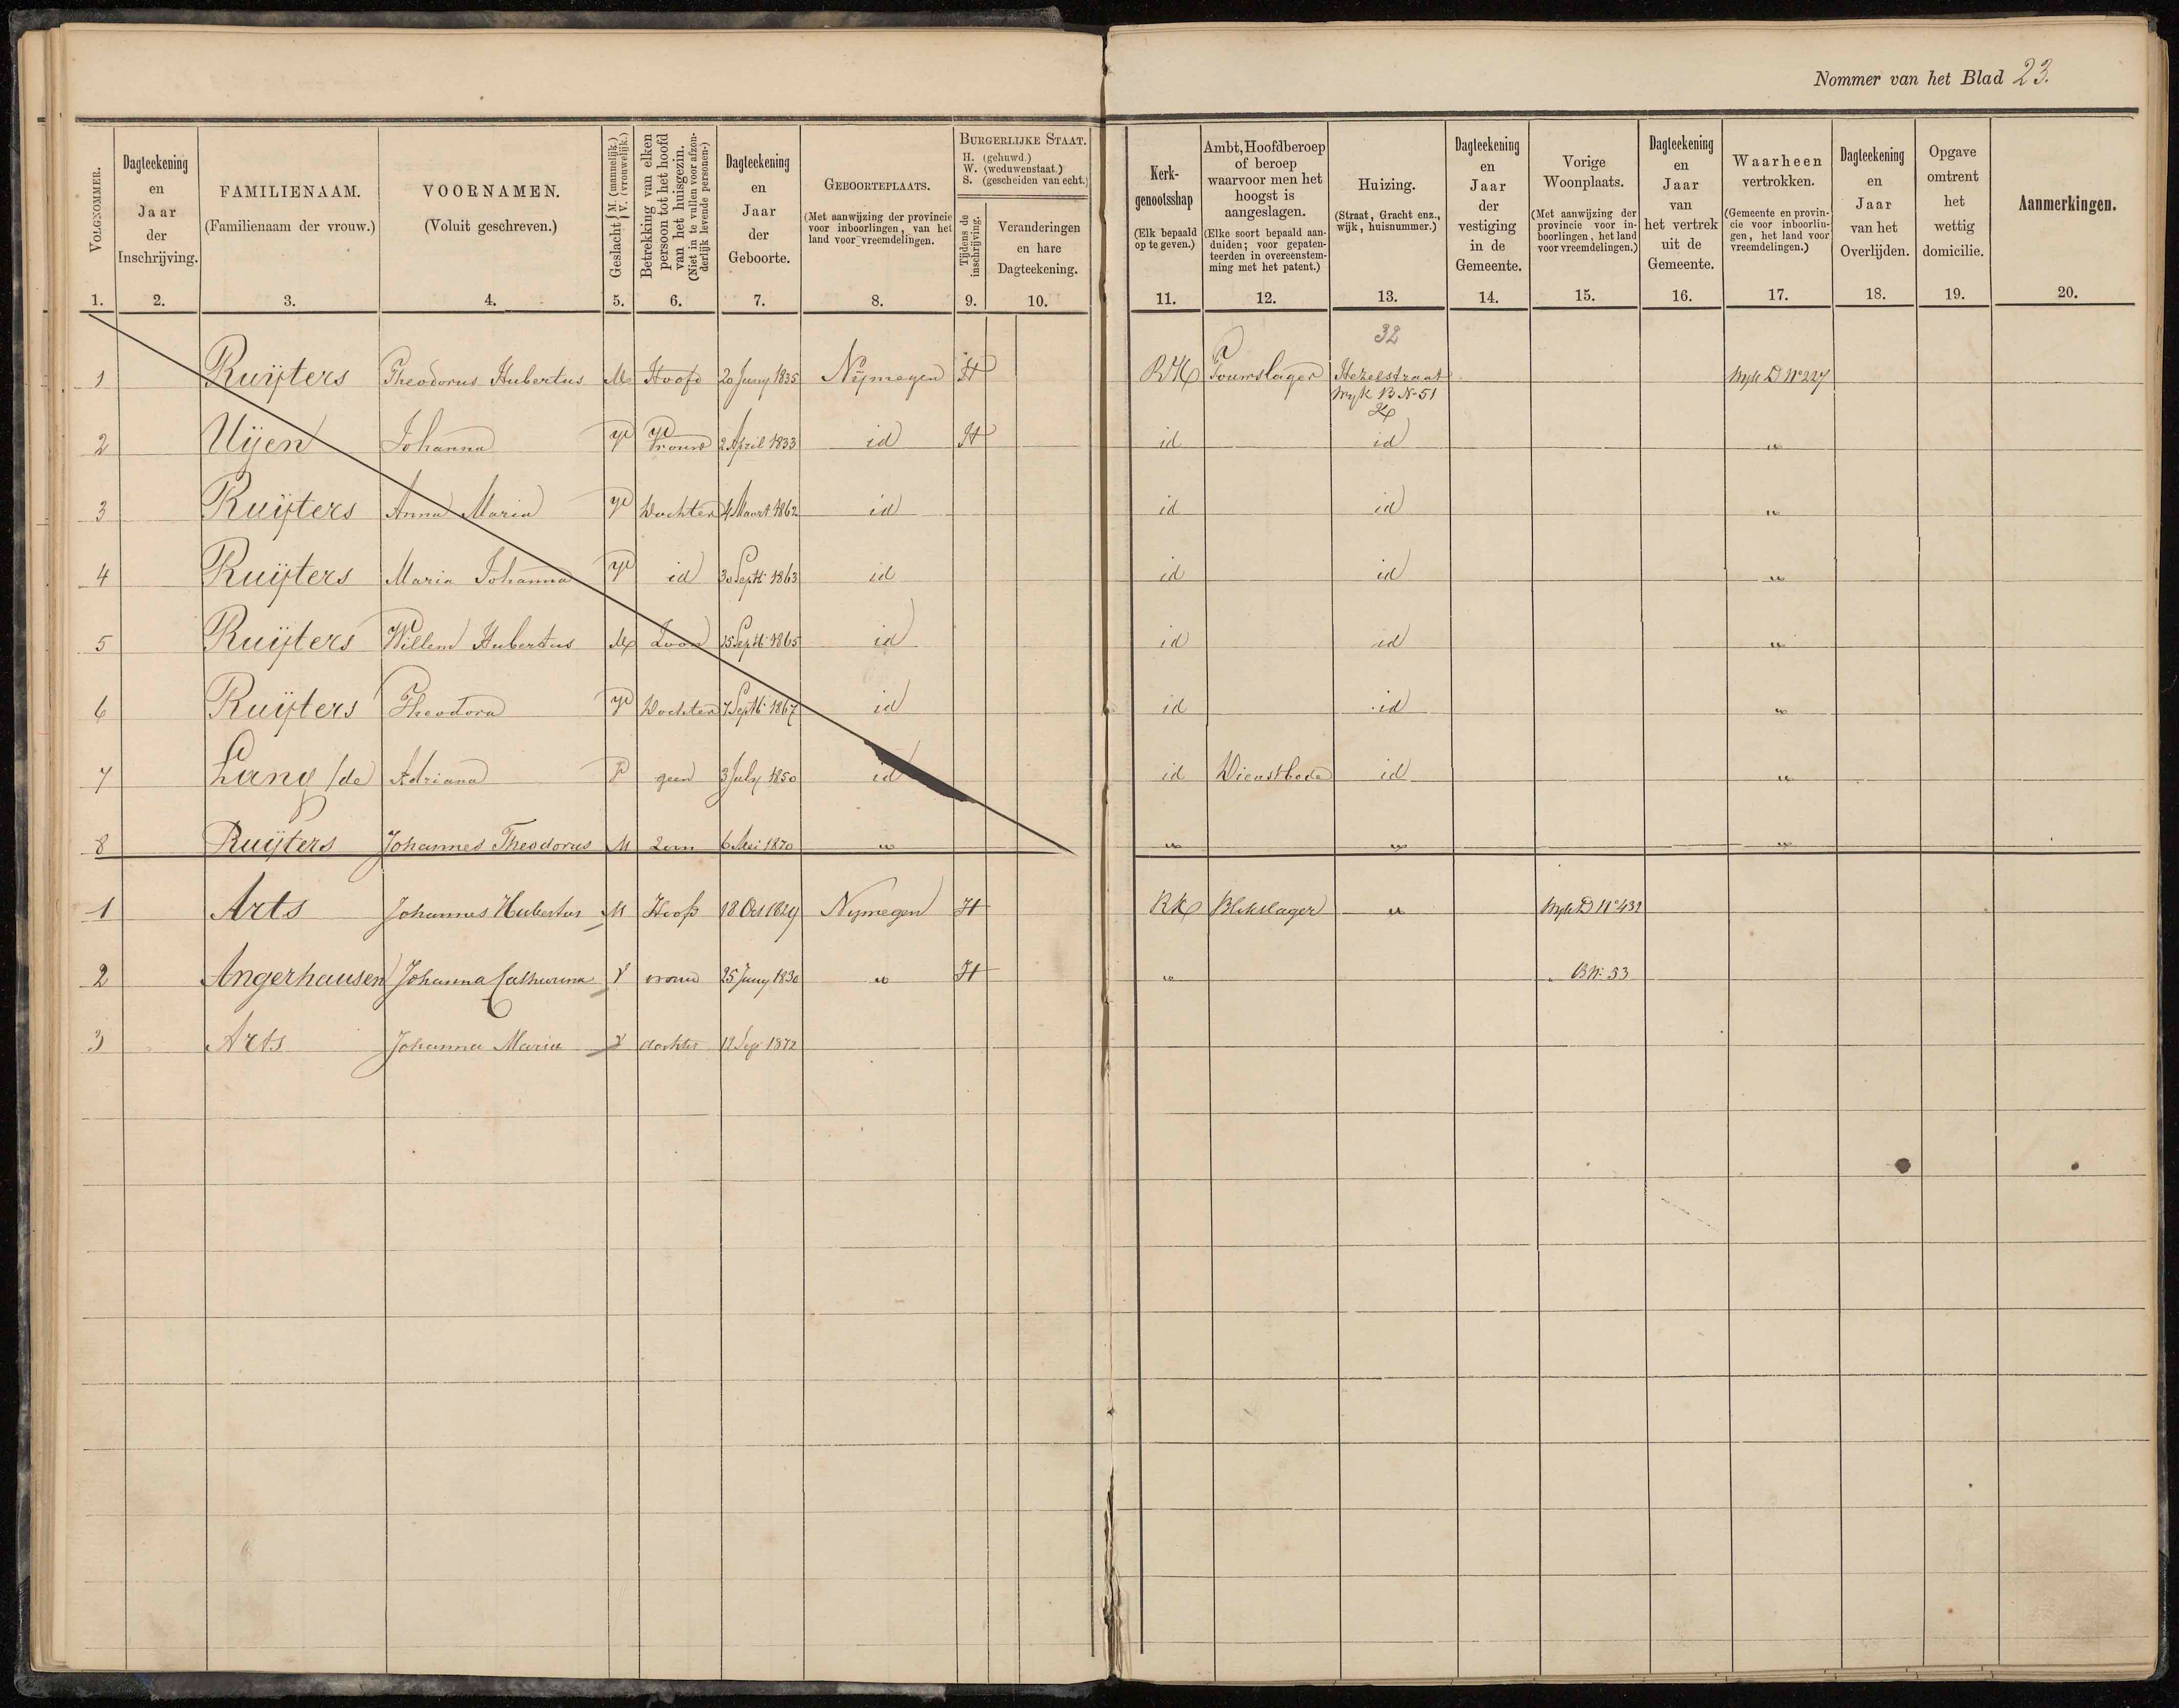 Nommer van het Blad 23.
VOLGNOMMER.
Dagteekening en Jaar der Inschrijving.
FAMILIENAAM.
(Familienaam der vrouw.)
VOORNAMEN.
(Voluit geschreven.)
Geslacht { M. (mannelijk.) V. (vrouwelijk.)
Betrekking van elken persoon tot het hoofd van het huisgezin.
(Niet in te vullen voor afzonderlijk levende personen-)
Dagteekening en Jaar der Geboorte.
GEBOORTEPLAATS.
(Met aanwijzing der provincie voor inboorlingen, van het land voor vreemdelingen.
BURGERLIJKE STAAT.
H. (gehuwd.)
W. (weduwenstaat.)
S. (gescheiden van echt.)
Tijdens de inschrijving.
Veranderingen en hare Dagteekening.
Kerkgenootsbap
(Elk bepaald op te geven.)
Ambt, Hoofdberoep of beroep waarvoor men het hoogst is aangeslagen.
(Elke soort bepaald aanduiden; voor gepatenteerden in overeenstemming met het patent.)
Huizing.
(Straat, Gracht enz., wijk, huisnummer.)
Dagteekening en Jaar der vestiging in de Gemeente.
Vorige Woonplaats.
(Met aanwijzing der provincie voor inboorlingen, het land voor vreemdelingen.)
Dagteekening en Jaar van het vertrek uit de Gemeente.
Waarheen vertrokken.
(Gemeente en provincie voor inboorlingen, het land voor vreemdelingen.)
Dagteekening en Jaar van het Overlijden.
Opgave omtrent het wettig domicilie.
Aanmerkingen.
1. 2. 3. 4. 5. 6. 7. 8. 9. 10. 11. 12. 13. 14. 15. 16. 17. 18. 19. 20.
32
1 Ruijters Theodorus Hubertus M Hoofd 20 Juny 1835 Nijmegen H RK Touwslager Hezelstraat Wyk D N° 227
Wyk B N° 51
2 Uijen Johanna V Vrouw 2 April 1833 id H id id "
3 Ruijters Anna Maria V Dochter 4 Maart 1862 id id id "
4 Ruijters Maria Johanna V id 30 Septb 1863 id id id "
5 Ruijters Willem Hubertus M Zoon 25 Septb 1865 id id id "
6 Ruijters Theodora V Dochter 7 Septb 1867 id id id "
7 Lang /de Adriana V geen 3 July 1850 id id Dienstbode id "
8 Ruijters Johannes Theodorus M Zoon 6 Mei 1870 " " " "
1 Arts Johannes Hubertus M Hoofd 18 Oct 1829 Nymegen H RK Blikslager " Wyk D N° 432
2 Angerhausen Johanna Catharina V vrouw 25 Juny 1830 " H " " B N° 53
3 Arts Johanna Maria V dochter 12 Sep 1872